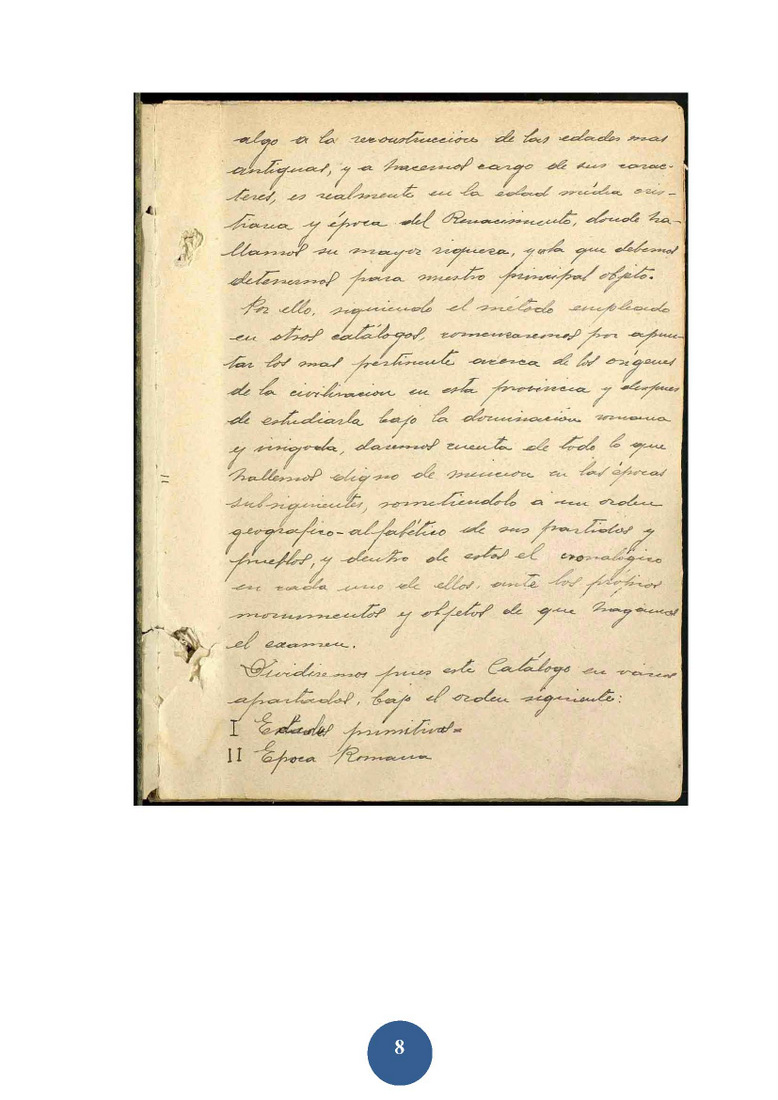 algo a la reconstrucción de las edades mas
antiguas, y a hacernos cargo de sus carac-
teres, es realmente en la edad média cris-
tiana y época del Renacimiento, donde ha-
llamos su mayor riqueza, y a la que debemos
detenernos para nuestro principal objeto.
Por ello, siguiendo el método empleado
en otros catálogos, comenzaremos por apun-
tar los mas pertinente acerca de los orígenes
de la civilizacion en esta provincia y despues
de estudiarla bajo la dominación romana
y visigoda, daremos cuenta de todo lo que
hallemos digno de mencion en las épocas
subsiguientes, sometiendolo a un orden
geografico-alfabético de sus partidos y
pueblos, y dentro de estos el cronológico
en cada uno de ellos, ante los própios
monumentos y objetos de que hagamos
el examen.
Dividiremos pues este Catálogo en varios
apartados, bajo el orden siguiente:
I primitivos=
II Epoca Romana
8